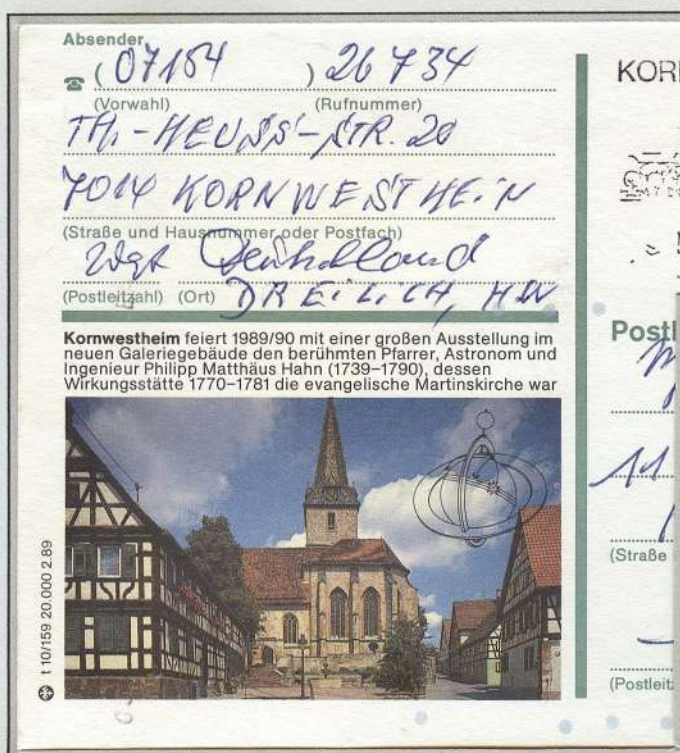 Absender
(07154) 26734
(Vorwahl) (Rufnummer)
TH.-HEUSS-STR. 20
7014 KORNWESTHEIM
(Straße und Hausnummer oder Postfach)
Deutschland
(Postleitzahl) (Ort) DREILICH, HW
Kornwestheim feiert 1989/90 mit einer großen Ausstellung im
neuen Galeriegebäude den berühmten Pfarrer, Astronom und
Ingenieur Philipp Matthäus Hahn (1739–1790), dessen
Wirkungsstätte 1770–1781 die evangelische Martinskirche war
t 10/159 20.000 2.89
KOR
Postl
11
(Straße
(Postleit